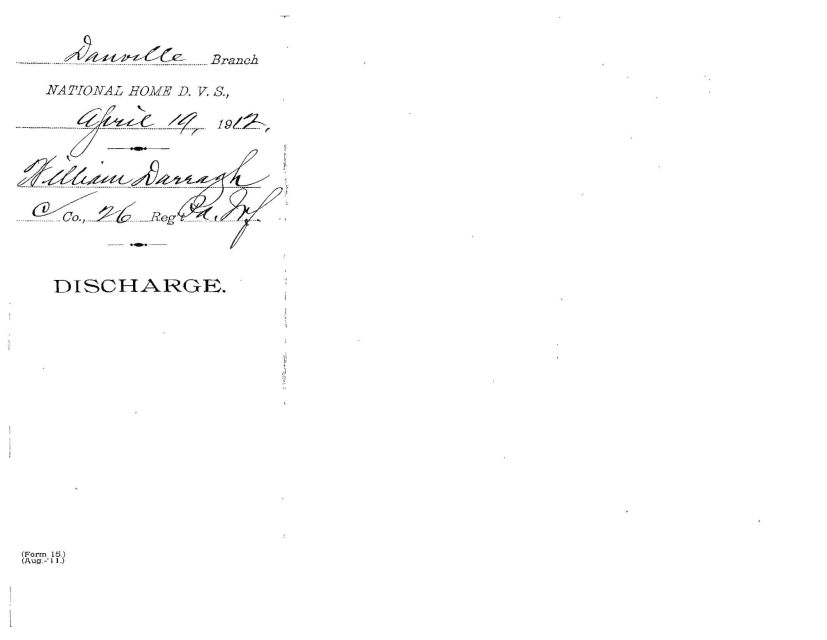 Danville Branch
NATIONAL HOME D. V. S.,
April 19, 1912.
William Darragh
C Co., 26 Reg't Pa. Inf.
DISCHARGE.
(Form 15.)
(Aug.-'11.)